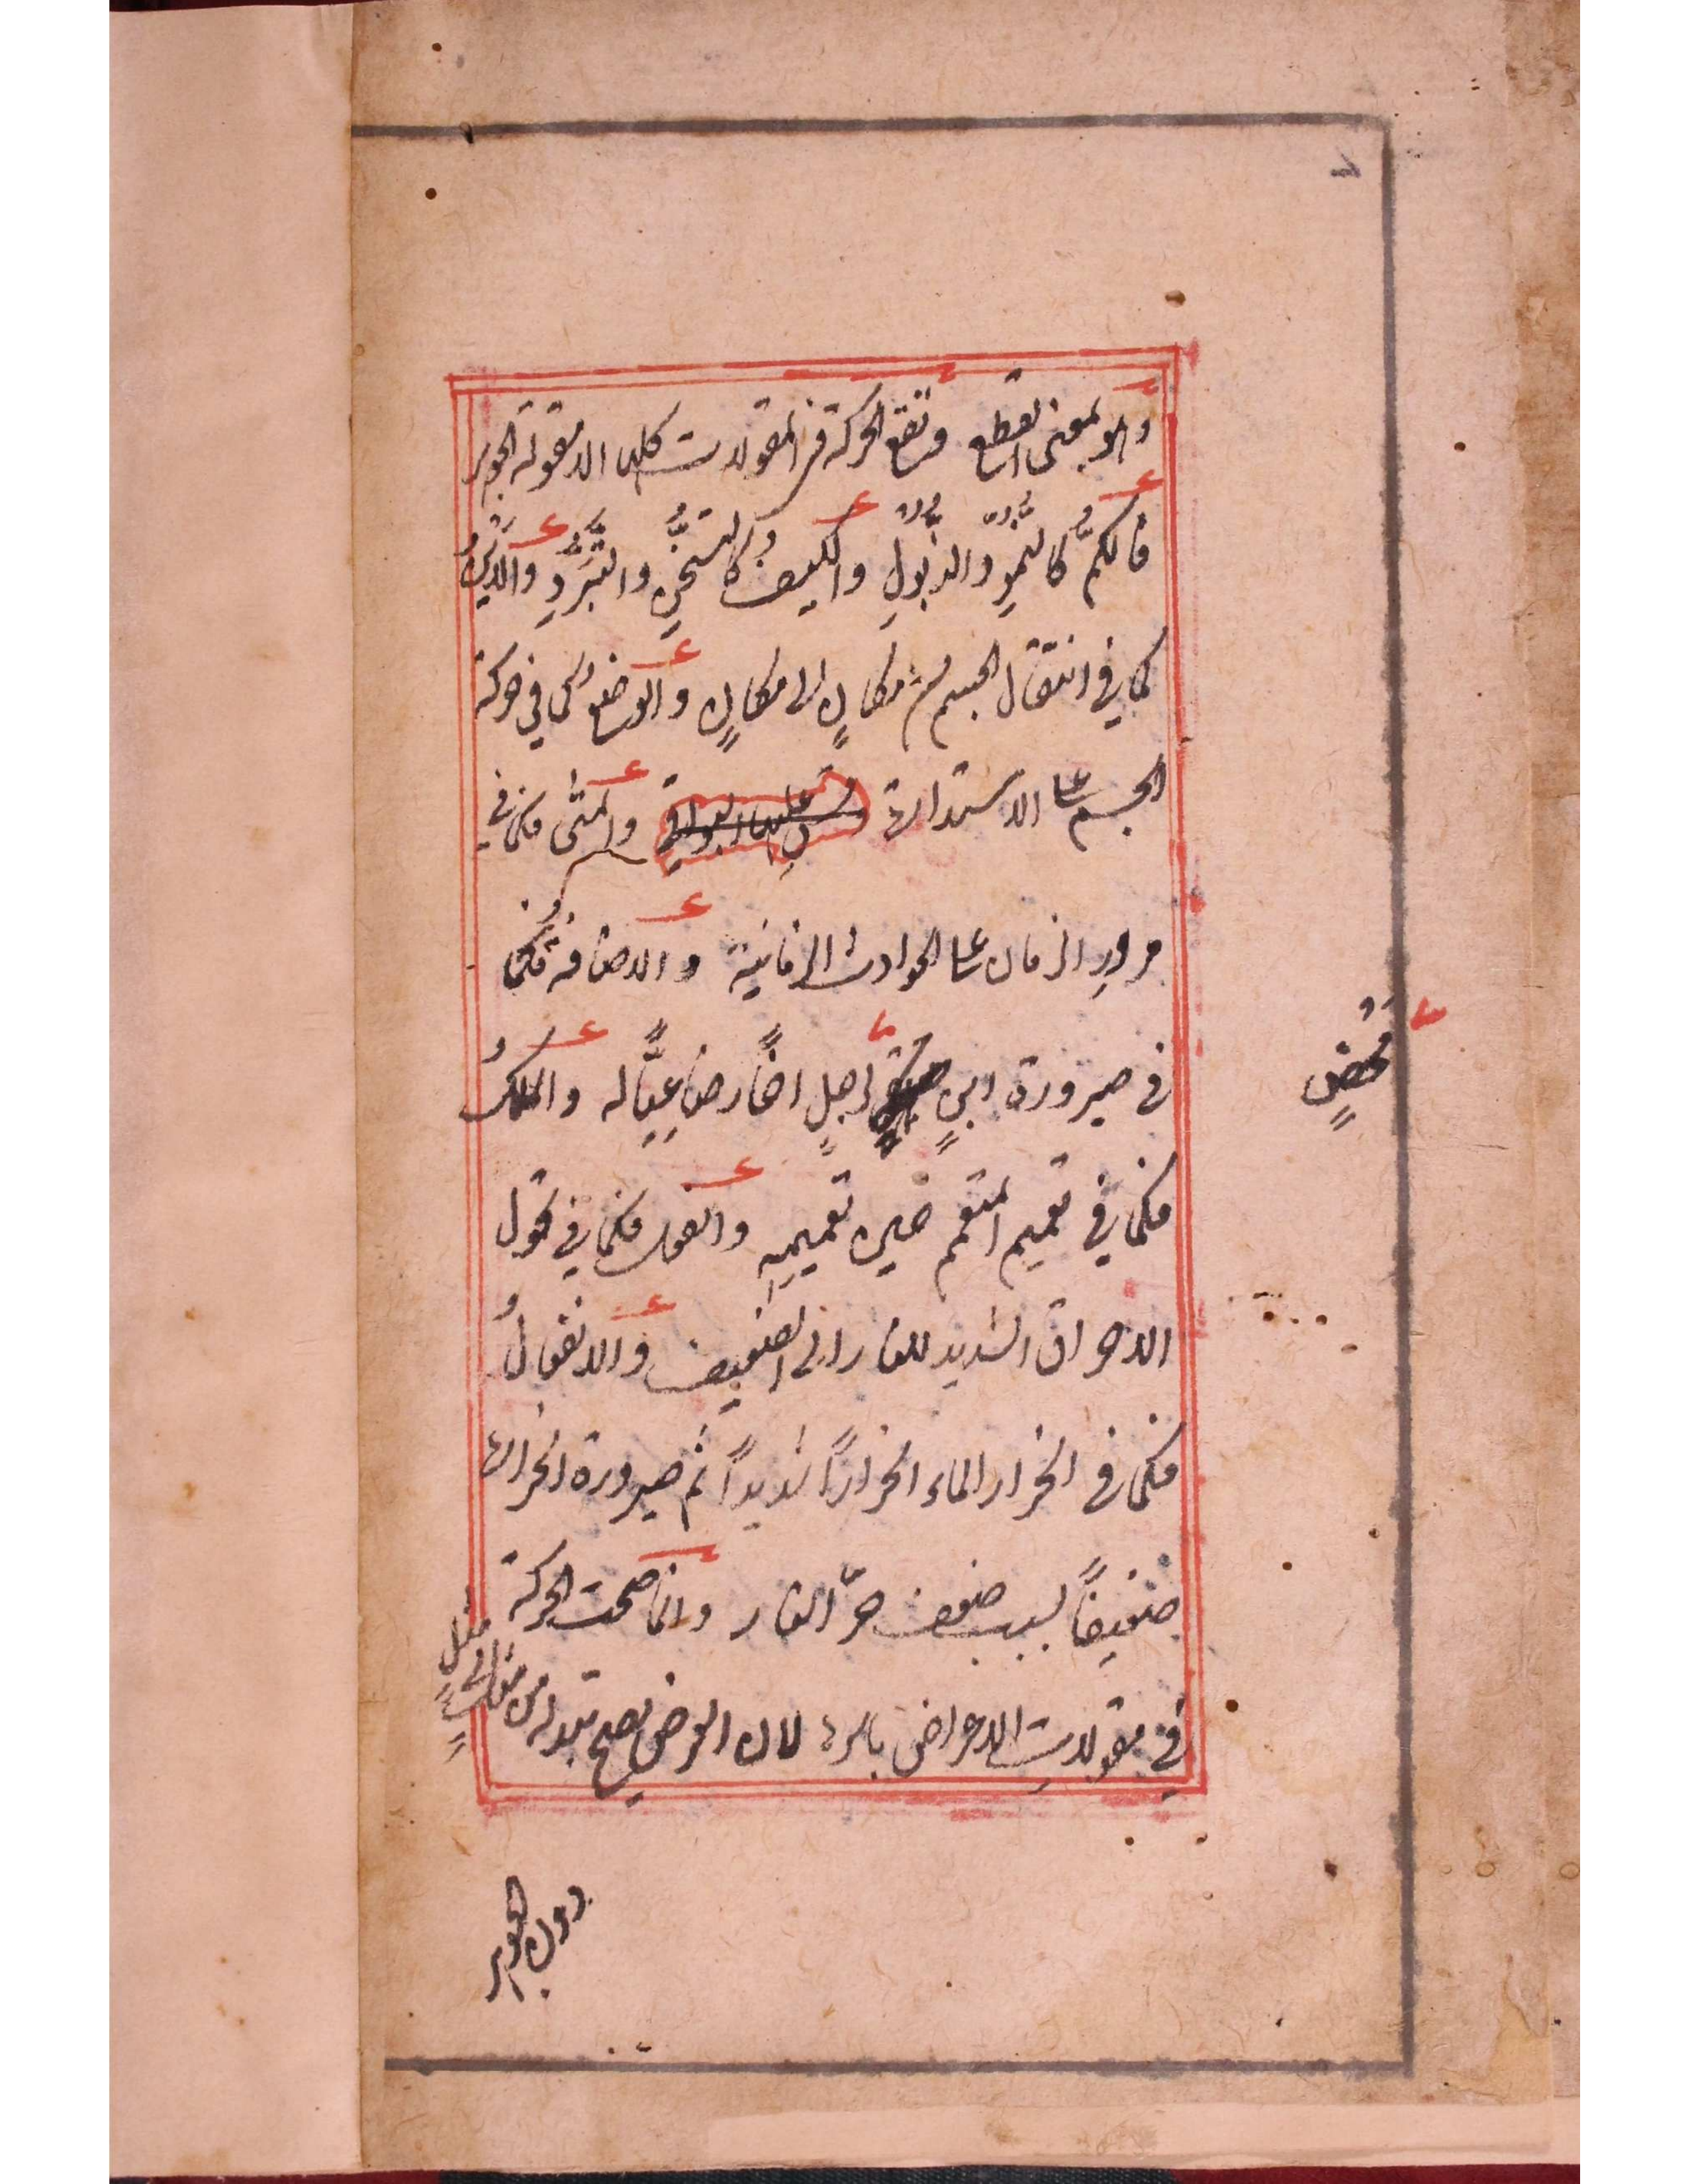 وهو بمعنى القطع وتقع الحركة في المقولات كلها الا مقولة الجوهر
فالكمُّ كالنُّموِّ والذُّبُولِ والكيف كالتسخُّنِ والتبَرُّدِ والأينُ
كما في انتقال الجسم من مكانٍ الى مكانٍ والوضعُ كما في حركة
الجسم على الاستدارة والمتى فكما في
مرورِ الزمان على الحوادث الزمانية والاضافةُ فكما
في صيرورة ابنِ رجلٍ اخًا رضاعيًّا له والملكُ
فكما في تعميم المتعمم حين تعميمِهِ والفعل فكما في تحول
الاحراق الشديد للنار الى الضعيف والانفعالُ
فكما في انحرار الماء انحرارًا شديدًا ثم صيرورة انحراره
ضعيفًا بسبب ضعف حرّ النار وانما صحت الحركة
في مقولاتِ الاعراض باسرها لان العرض يصح تبدله من
مثلٍ
دون الجوهر